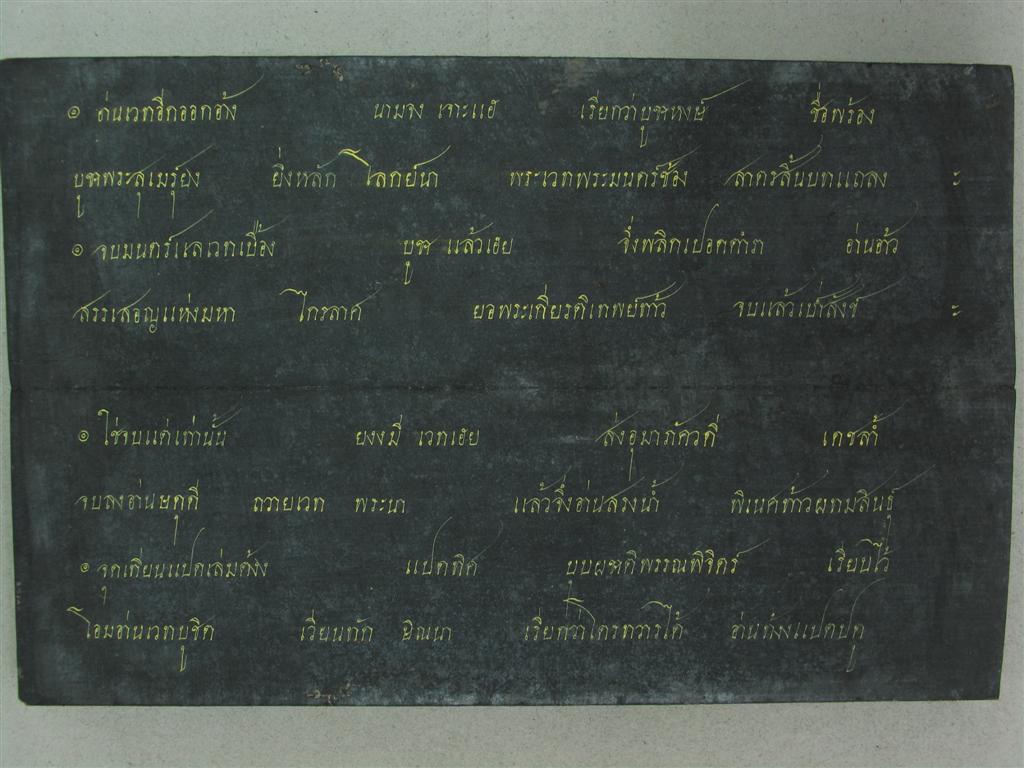 ๏ อ่านเวทอีกออกอ้าง นามจง เจาะแฮ เรียกว่าบูชหงษ์ ชื่อพร้อง
บูชพระสุเมรุ์ยง ยิ่งหลัก โลกย์นา พระเวทพระมนตร์ซ้อง สาตรสิ้นบทแถลง ะ
๏ จบมนตร์แลเวทเบื้อง บูช แล้วเฮย จึ่งพลิกเปอดตำรา อ่านอ้าว
สรรเสอญแห่งมหา ไกรลาศ ยอพระเกียรติเทพย์ท้าว จบแล้วเป่าสังข ะ
๏ ใช่จบแต่เท่านั้น ยงงมี เวทเฮย ส่งอุมาภัควดี เดชล้ำ
จบลงอ่านษดุดี ถวายเวท พระนา แล้วจึ่งอ่านสรงน้ำ พิเนศท้าวผทมสินธุ์
๏ จุดเทียนแปดเล่มต้งง แปดทิศ บุบผชาติพรรณพิจิตร์ เรียบไว้
โอมอ่านเวทบูชิต เวียนทัก ษิณนา เรียกว่าโตรทวารได้ อ่านท้งงแปดปดู